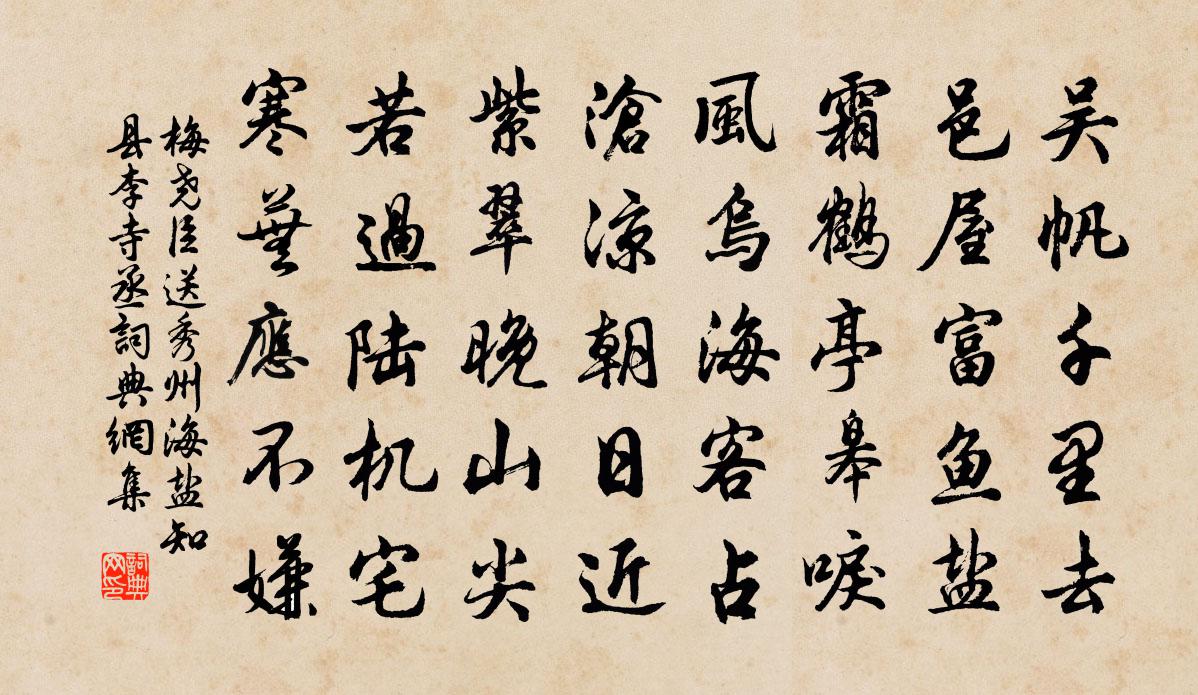 吴帆千里去
邑屋富鱼盐
霜鶴亭皋唳
風烏海客占
滄涼朝日近
紫翠晚山尖
若過陆机宅
寒蕪應不嫌
梅尧臣送秀州海盐知
县李寺丞詞典網集
詞典
网印